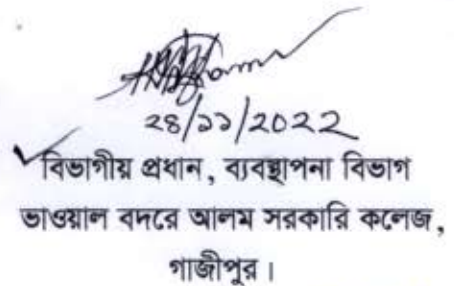 ২৪/১১/২০২২
বিভাগীয় প্রধান, ব্যবস্থাপনা বিভাগ
ভাওয়াল বদরে আলম সরকারি কলেজ,
গাজীপুর।